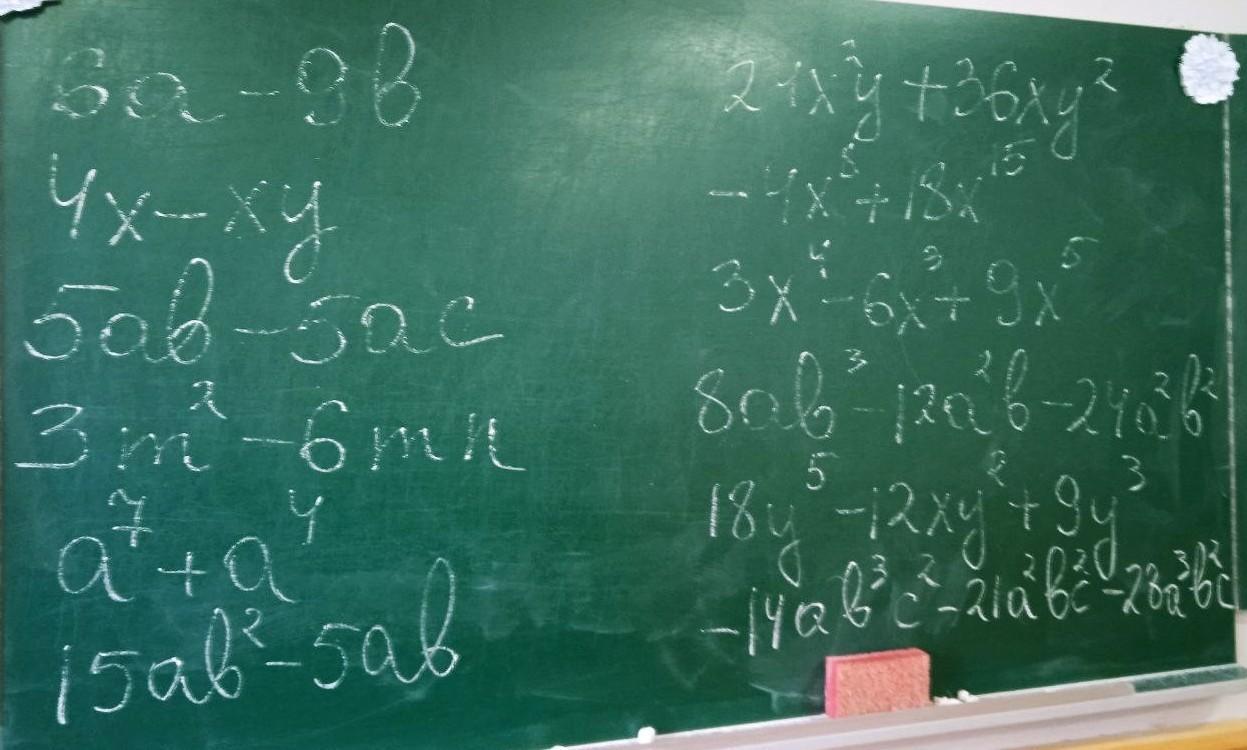 6a - 9b
4x - xy
5ab - 5ac
3m² - 6mn
a⁷ + a⁴
15ab² - 5ab
24x²y + 36xy²
-4x⁸ + 18x¹⁵
3x⁴ - 6x³ + 9x⁵
8ab³ - 12a²b - 24a²b²
18y⁵ - 12xy² + 9y³
-14ab³c² - 21a²bc² - 28a³b²c